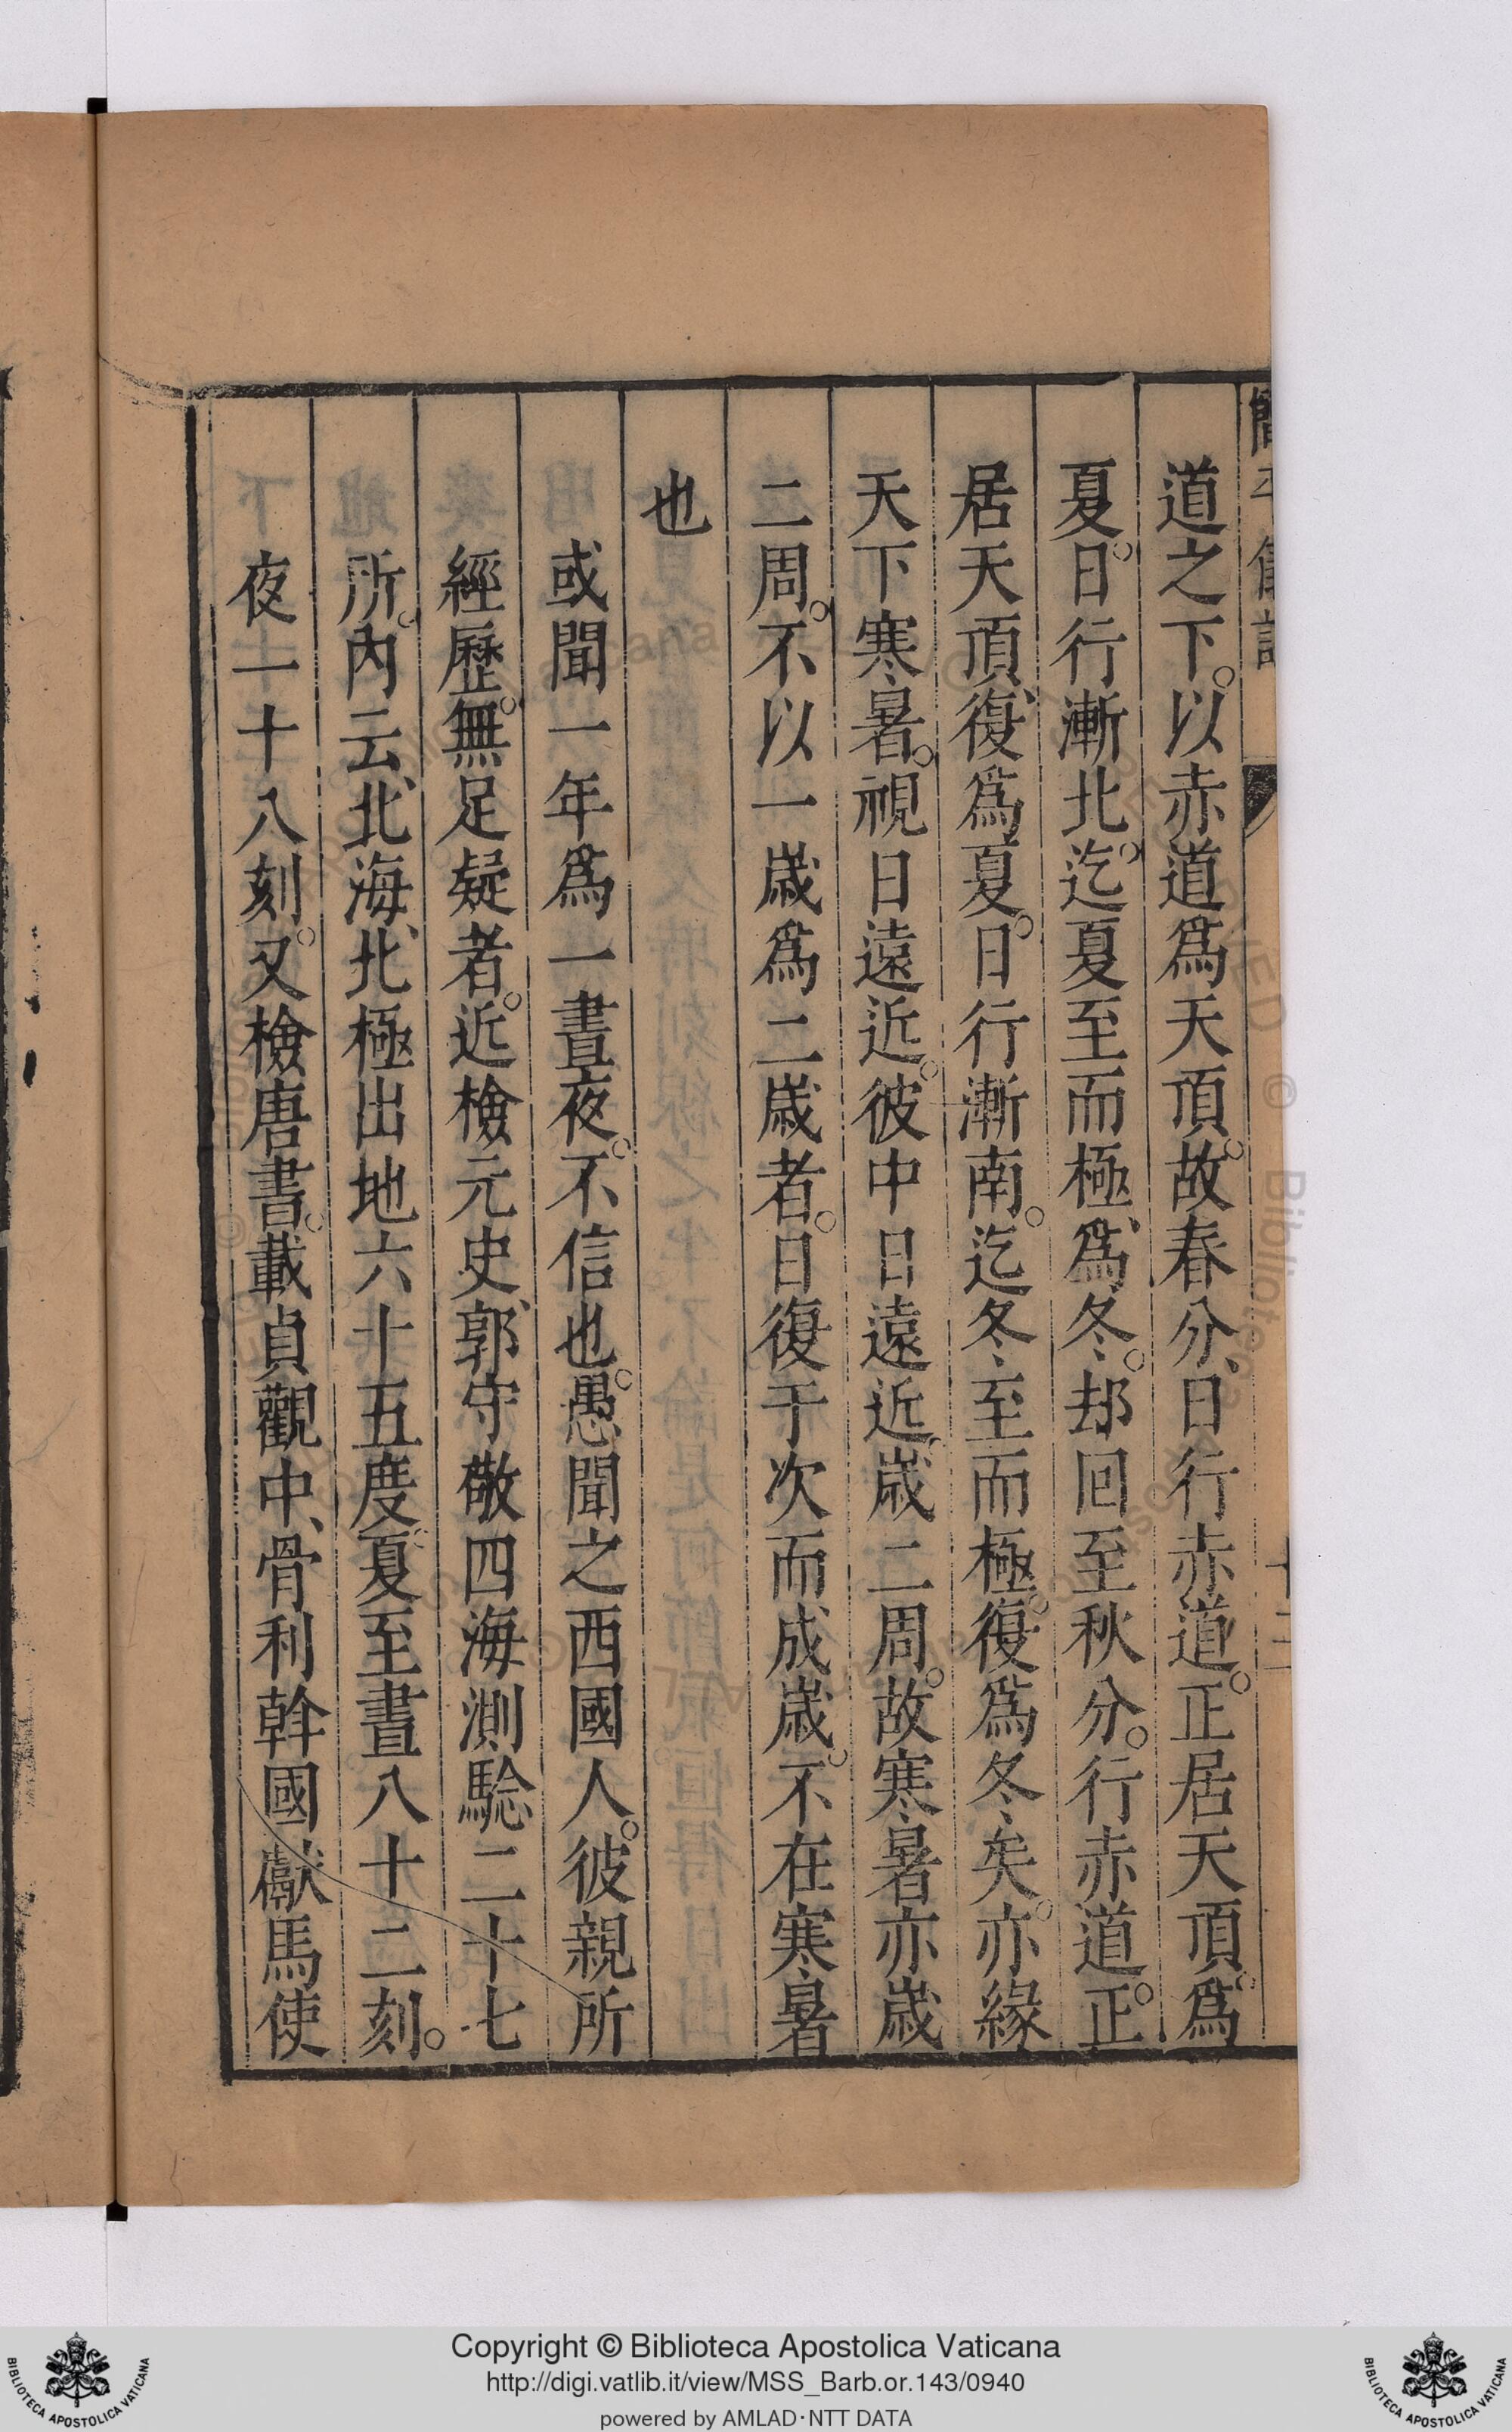 道之下。以赤道爲天頂。故春分、日行赤道。正居天頂。爲
夏。日行漸北。迄夏至而極、爲冬。却回至秋分。行赤道。正
居天頂、復爲夏。日行漸南。迄冬至而極。復爲冬矣。亦緣
天下寒暑。視日遠近。彼中日遠近。歲二周。故寒暑亦歲
二周。不以一歲爲二歲者。日復于次而成歲。不在寒暑
也
或聞一年爲一晝夜。不信也。愚聞之西國人。彼親所
經歷。無足疑者。近檢元史、郭守敬四海測騐二十七
所。內云、北海、北極出地六十五度。夏至晝八十二刻。
夜一十八刻。又檢唐書。載貞觀中、骨利幹國獻馬使
Copyright © Biblioteca Apostolica Vaticana
http://digi.vatlib.it/view/MSS_Barb.or.143/0940
powered by AMLAD·NTT DATA
BIBLIOTECA APOSTOLICA VATICANA
BIBLIOTECA APOSTOLICA VATICANA